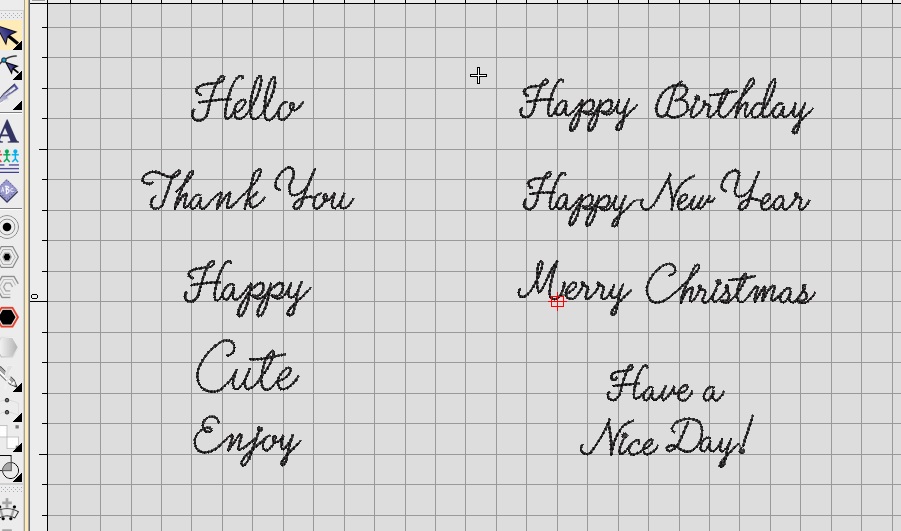 Hello
Thank You
Happy
Cute
Enjoy
Happy Birthday
Happy New Year
Merry Christmas
Have a
Nice Day!
A
ABC
0